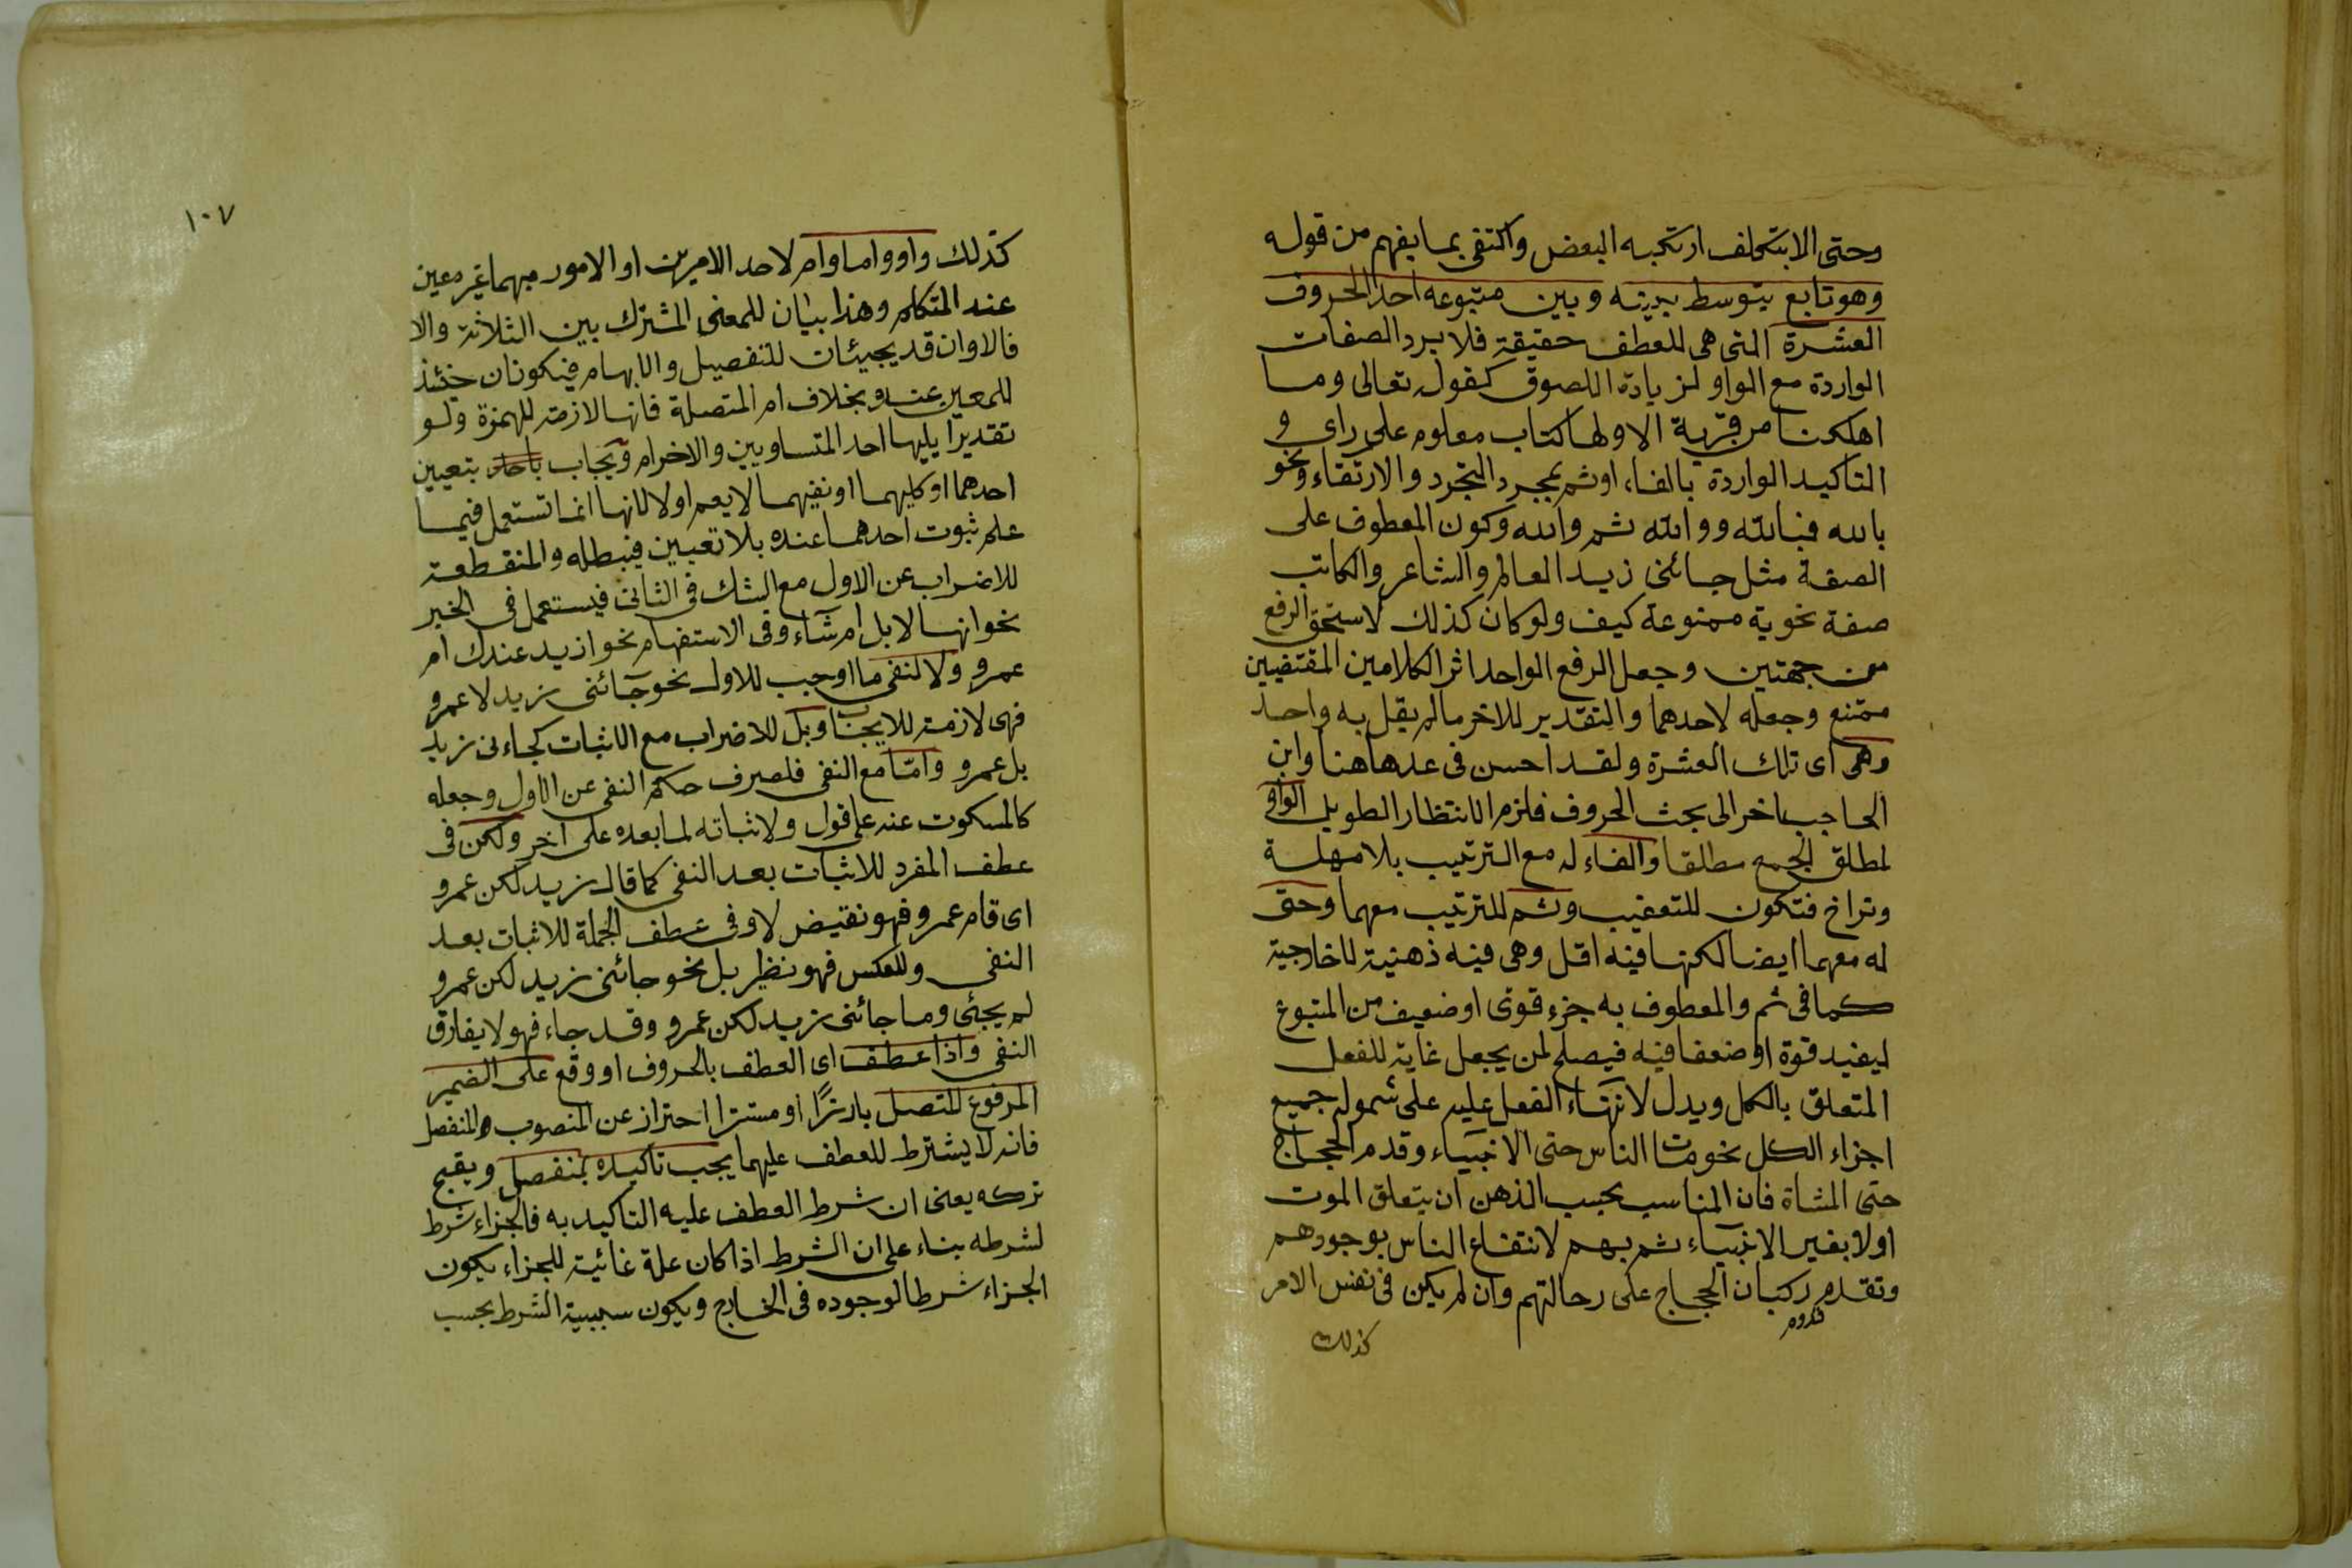 وحتى الا بتكلف ارتكبه البعض واكتفى بما يفهم من قوله
وهو تابع يتوسط بينه وبين متبوعه احد الحروف
العشرة التى هى للعطف حقيقة فلا يرد الصفات
الواردة مع الواو لزيادة اللصوق كقوله تعالى وما
اهلكنا من قرية الا ولها كتاب معلوم على راى و
التاكيد الواردة بالفاء اوثم بمجرد التجرد والارتقاء ونحو
بالله فبالله ووالله ثم والله وكون المعطوف على
الصفة مثل جائنى زيد العالم والشاعر والكاتب
صفة نحوية ممنوعة كيف ولو كان كذلك لاستحق الرفع
من جهتين وجعل الرفع الواحد اثر الكلامين المقتضيين
ممتنع وجعله لاحدهما والتقدير للاخر مالم يقل به واحد
وهى اى تلك العشرة ولقد احسن فى عدها هنا وابن
الحاجب اخر الى بحث الحروف فلزم الانتظار الطويل الواو
لمطلق الجمع مطلقا والفاء له مع الترتيب بلا مهلة
وتراخ فتكون للتعقيب وثم للترتيب معهما وحتى
له معهما ايضا لكنها فيه اقل وهى فيه ذهنية لا خارجية
كما فى ثم والمعطوف به جزء قوى او ضعيف من المتبوع
ليفيد قوة او ضعفا فيه فيصلح لمن يجعل غاية للفعل
المتعلق بالكل ويدل لانتهاء الفعل عليه على شموله جميع
اجزاء الكل نحو مات الناس حتى الانبياء وقدم الحجاج
حتى المشاة فان المناسب بحسب الذهن ان يتعلق الموت
اولا بغير الانبياء ثم بهم لانتفاع الناس بوجودهم
وتقدم ركبان الحجاج على رحالتهم وان لم يكن فى نفس الامر
قدوم
كذلك
١٠٧
كذلك واو واما وام لاحد الامرين او الامور مبهما غير معين
عند المتكلم وهذا بيان للمعنى المشترك بين الثلاثة والا
فالاوان قد يجيئان للتفصيل والابهام فيكونان حينئذ
للمعين عنده بخلاف ام المتصلة فانها لازمة للهمزة ولو
تقديرا يليها احد المتساويين والاخر ام ويجاب باحد بتعيين
احدهما او كليهما او نفيهما لا بنعم او لا لانها انما تستعمل فيما
علم ثبوت احدهما عنده بلا تعيين فيبطله والمنقطعة
للاضراب عن الاول مع الشك فى الثانى فيستعمل فى الخبر
نحو انها لابل ام شاء وفى الاستفهام نحو ازيد عندك ام
عمرو ولا لنفى ما اوجب للاول نحو جائنى زيد لا عمرو
فهى لازمة للايجاب وبل للاضراب مع الاثبات كجاءنى زيد
بل عمرو وامّا مع النفى فلصرف حكم النفى عن الاول وجعله
كالمسكوت عنه على قول ولاثباته لما بعده على آخر ولكن فى
عطف المفرد للاثبات بعد النفى كما قال زيد لكن عمرو
اى قام عمرو فهو نقيض لا وفى عطف الجملة للاثبات بعد
النفى وللعكس فهو نظير بل نحو جائنى زيد لكن عمرو
لم يجئى وما جائنى زيد لكن عمرو وقد جاء فهو لا يفارق
النفى واذا عطف اى العطف بالحروف او وقع على الضمير
المرفوع المتصل بارزًا او مستترا احتراز عن المنصوب والمنفصل
فانه لا يشترط للعطف عليهما يجب تاكيده بمنفصل ويقبح
تركه يعنى ان شرط العطف عليه التاكيد به فالجزاء شرط
لشرطه بناء على ان الشرط اذا كان علة غائية للجزاء يكون
الجزاء شرطا لوجوده فى الخارج ويكون سببية الشرط بحسب